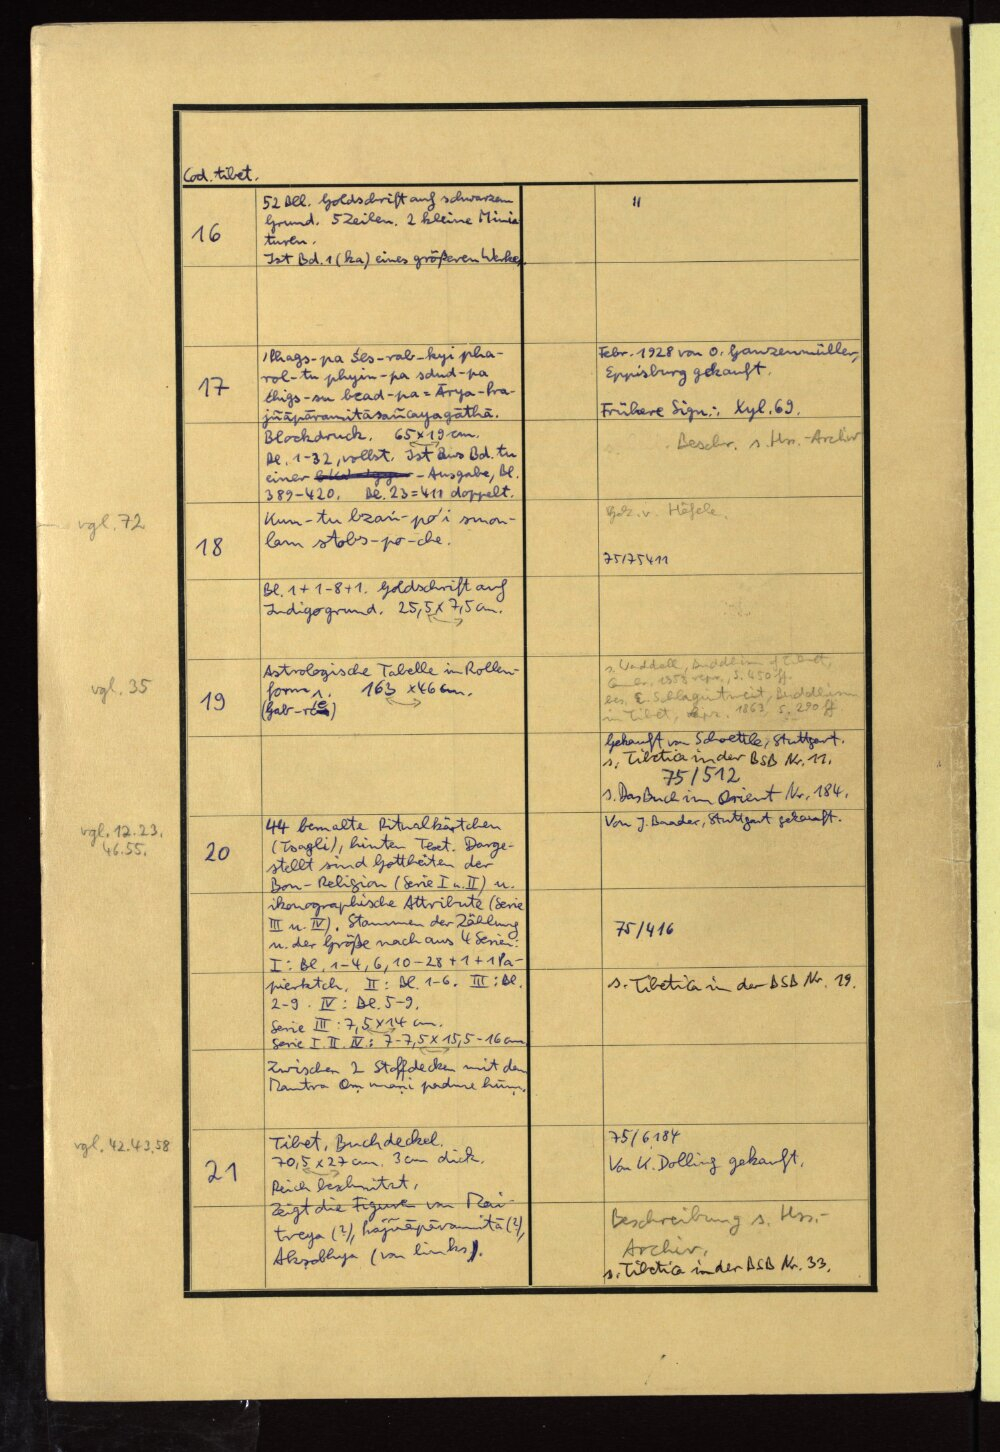 Cod. tibet.
16
52 Bll. Goldschrift auf schwarzem
Grund. 5 Zeilen. 2 kleine Minia
turen.
Ist Bd. 1 (ka) eines größeren Werkes
"
17
'Phags-pa Śes-rab-kyi pha-
rol-tu phyin-pa sdud-pa
thigs-su bcad-pa = Ārya-Pra-
jñāpāramitāsañcayagāthā.
Blockdruck. 65 x 19 cm.
Bl. 1-32, vollst. Ist aus Bd. tu
einer -Ausgabe, Bl.
389-420. Bl. 23 = 411 doppelt.
Febr. 1928 von O. Ganzenmüller,
Eppisburg gekauft.
Frühere Sign.: Xyl. 69.
Beschr. s. Hss.-Archiv
vgl. 72
18
Kun-tu bzaṅ-po'i smon-
lam stobs-po-che.
Bl. 1+1-8+1. Goldschrift auf
Indigogrund. 25,5 x 7,5 cm.
Gek. v. Höfele.
75/75411
vgl. 35
19
Astrologische Tabelle in Rollen-
form. 163 x 46 cm.
(Gab-rtse)
s. Waddell, Buddhism of Tibet,
Cambr. 1958 repr., S. 450 ff.
bes. E. Schlagintweit, Buddhism
in Tibet, Leipz. 1863, S. 290 ff.
Gekauft von Schoettle, Stuttgart.
s. Tibetica in der BSB Nr. 11.
75/512
s. Das Buch im Orient Nr. 184.
vgl. 12.23.
46.55.
20
44 bemalte Ritualkärtchen
(Tsagli), hinten Text. Darge-
stellt sind Gottheiten der
Bon-Religion (Serie I u. II) u.
ikonographische Attribute (Serie
III u. IV). Stammen der Zählung
u. der Größe nach aus 4 Serien:
I: Bl. 1-4, 6, 10-28+1+1 Pa-
pierktch. II: Bl. 1-6. III: Bl.
2-9. IV: Bl. 5-9.
Serie III: 7,5 x 14 cm.
Serie I. II. IV: 7-7,5 x 15,5-16 cm
Zwischen 2 Stoffdecken mit dem
Mantra Oṃ maṇi padme hūṃ.
Von J. Baader, Stuttgart gekauft.
75/416
s. Tibetica in der BSB Nr. 19.
vgl. 42.43.58
21
Tibet, Buchdeckel.
70,5 x 27 cm. 3 cm dick.
Reich beschnitzt.
Zeigt die Figuren von Mai-
treya (?), Prajñāpāramitā (?),
Akṣobhya (von links).
75/6184
Von K. Dolling gekauft.
Beschreibung s. Hss.-
Archiv.
s. Tibetica in der BSB Nr. 33.